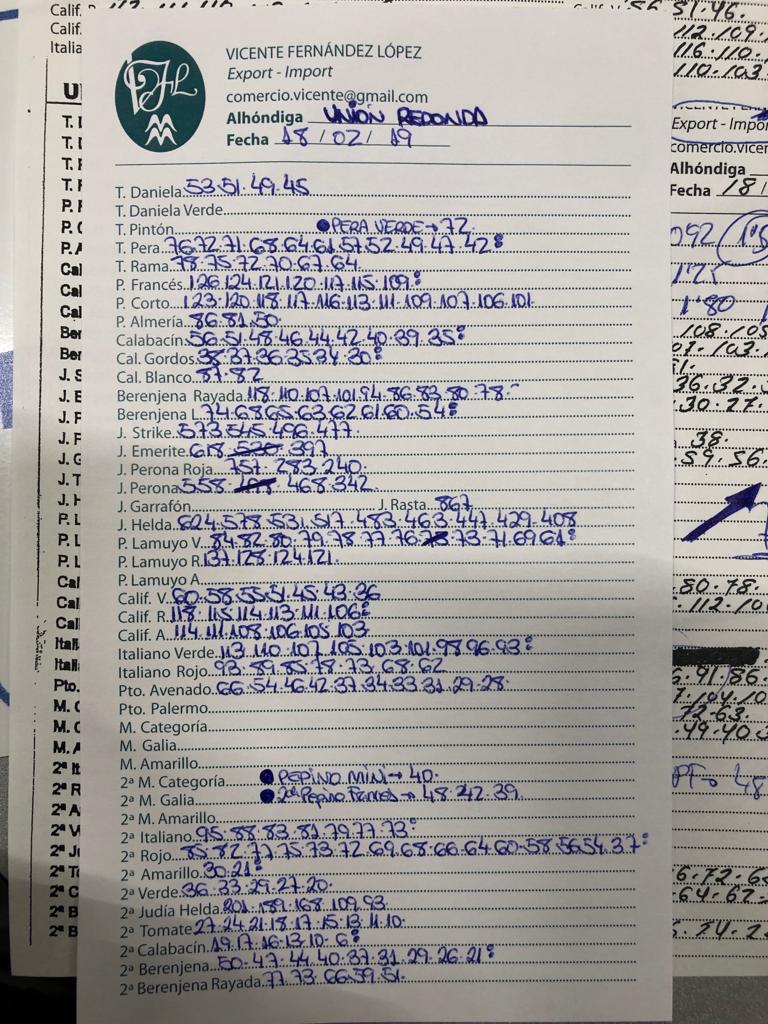 VICENTE FERNÁNDEZ LÓPEZ
Export - Import
comercio.vicente@gmail.com
Alhóndiga UNIÓN REDONDA
Fecha 18/02/19
T. Daniela 53.51.49.45
T. Daniela Verde
T. Pintón ●PERA VERDE→72
T. Pera 76.72.71.68.64.61.57.52.49.47.42:
T. Rama 78.75.72.70.67.64.
P. Francés 126.124.121.120.117.115.109:
P. Corto 123.120.118.117.116.113.111.109.107.106.101
P. Almería 86.81.50.
Calabacín 56.51.48.46.44.42.40.39.35:
Cal. Gordos 38.37.36.35.34.30:
Cal. Blanco 87.82
Berenjena Rayada 118.110.107.101.94.86.83.80.78.
Berenjena L 74.68.65.63.62.61.60.54:
J. Strike 573.545.496.477
J. Emerite 618. 397
J. Perona Roja 757.283.240.
J. Perona 558. 468.342
J. Garrafón J. Rasta 867
J. Helda 624.578.531.517.483.463.447.429.408
P. Lamuyo V. 84.82.80.79.78.77.76.73.71.69.61:
P. Lamuyo R. 137.128.124.121.
P. Lamuyo A.
Calif. V. 60.58.55.51.45.43.36
Calif. R. 118.115.114.113.111.106:
Calif. A. 114.111.108.106.105.103
Italiano Verde 113.110.107.105.103.101.98.96.93:
Italiano Rojo 93.89.85.78.73.68.62
Pto. Avenado 66.54.46.42.37.34.33.31.29.28.
Pto. Palermo
M. Categoría
M. Galia
M. Amarillo
2ª M. Categoría ●PEPINO MINI→40.
2ª M. Galia ●2ª Pepino →48.42.39
2ª M. Amarillo
2ª Italiano 95.88.83.81.79.77.73:
2ª Rojo 85.82.77.75.73.72.69.68.66.64.60.58.56.54.37:
2ª Amarillo 30.21:
2ª Verde 36.33.29.27.20.
2ª Judía Helda 201.189.168.109.93
2ª Tomate 27.24.21.18.17.15.13.11.10.
2ª Calabacín 19.17.16.13.10.6:
2ª Berenjena 50.47.44.40.37.31.29.26.21:
2ª Berenjena Rayada 77.73.66.59.51.